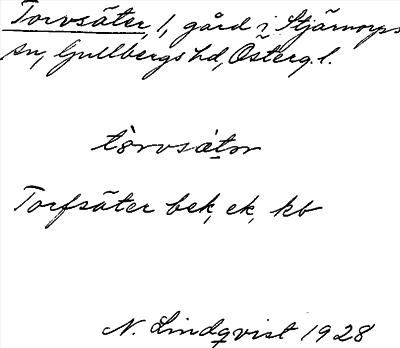 Torvsäter, 1, gård i Stjärnorps
sn, Gullbergs hd, Österg. l.
tòrvsätǝr
Torfsäter bek, ek, kb
N. Lindqvist 1928